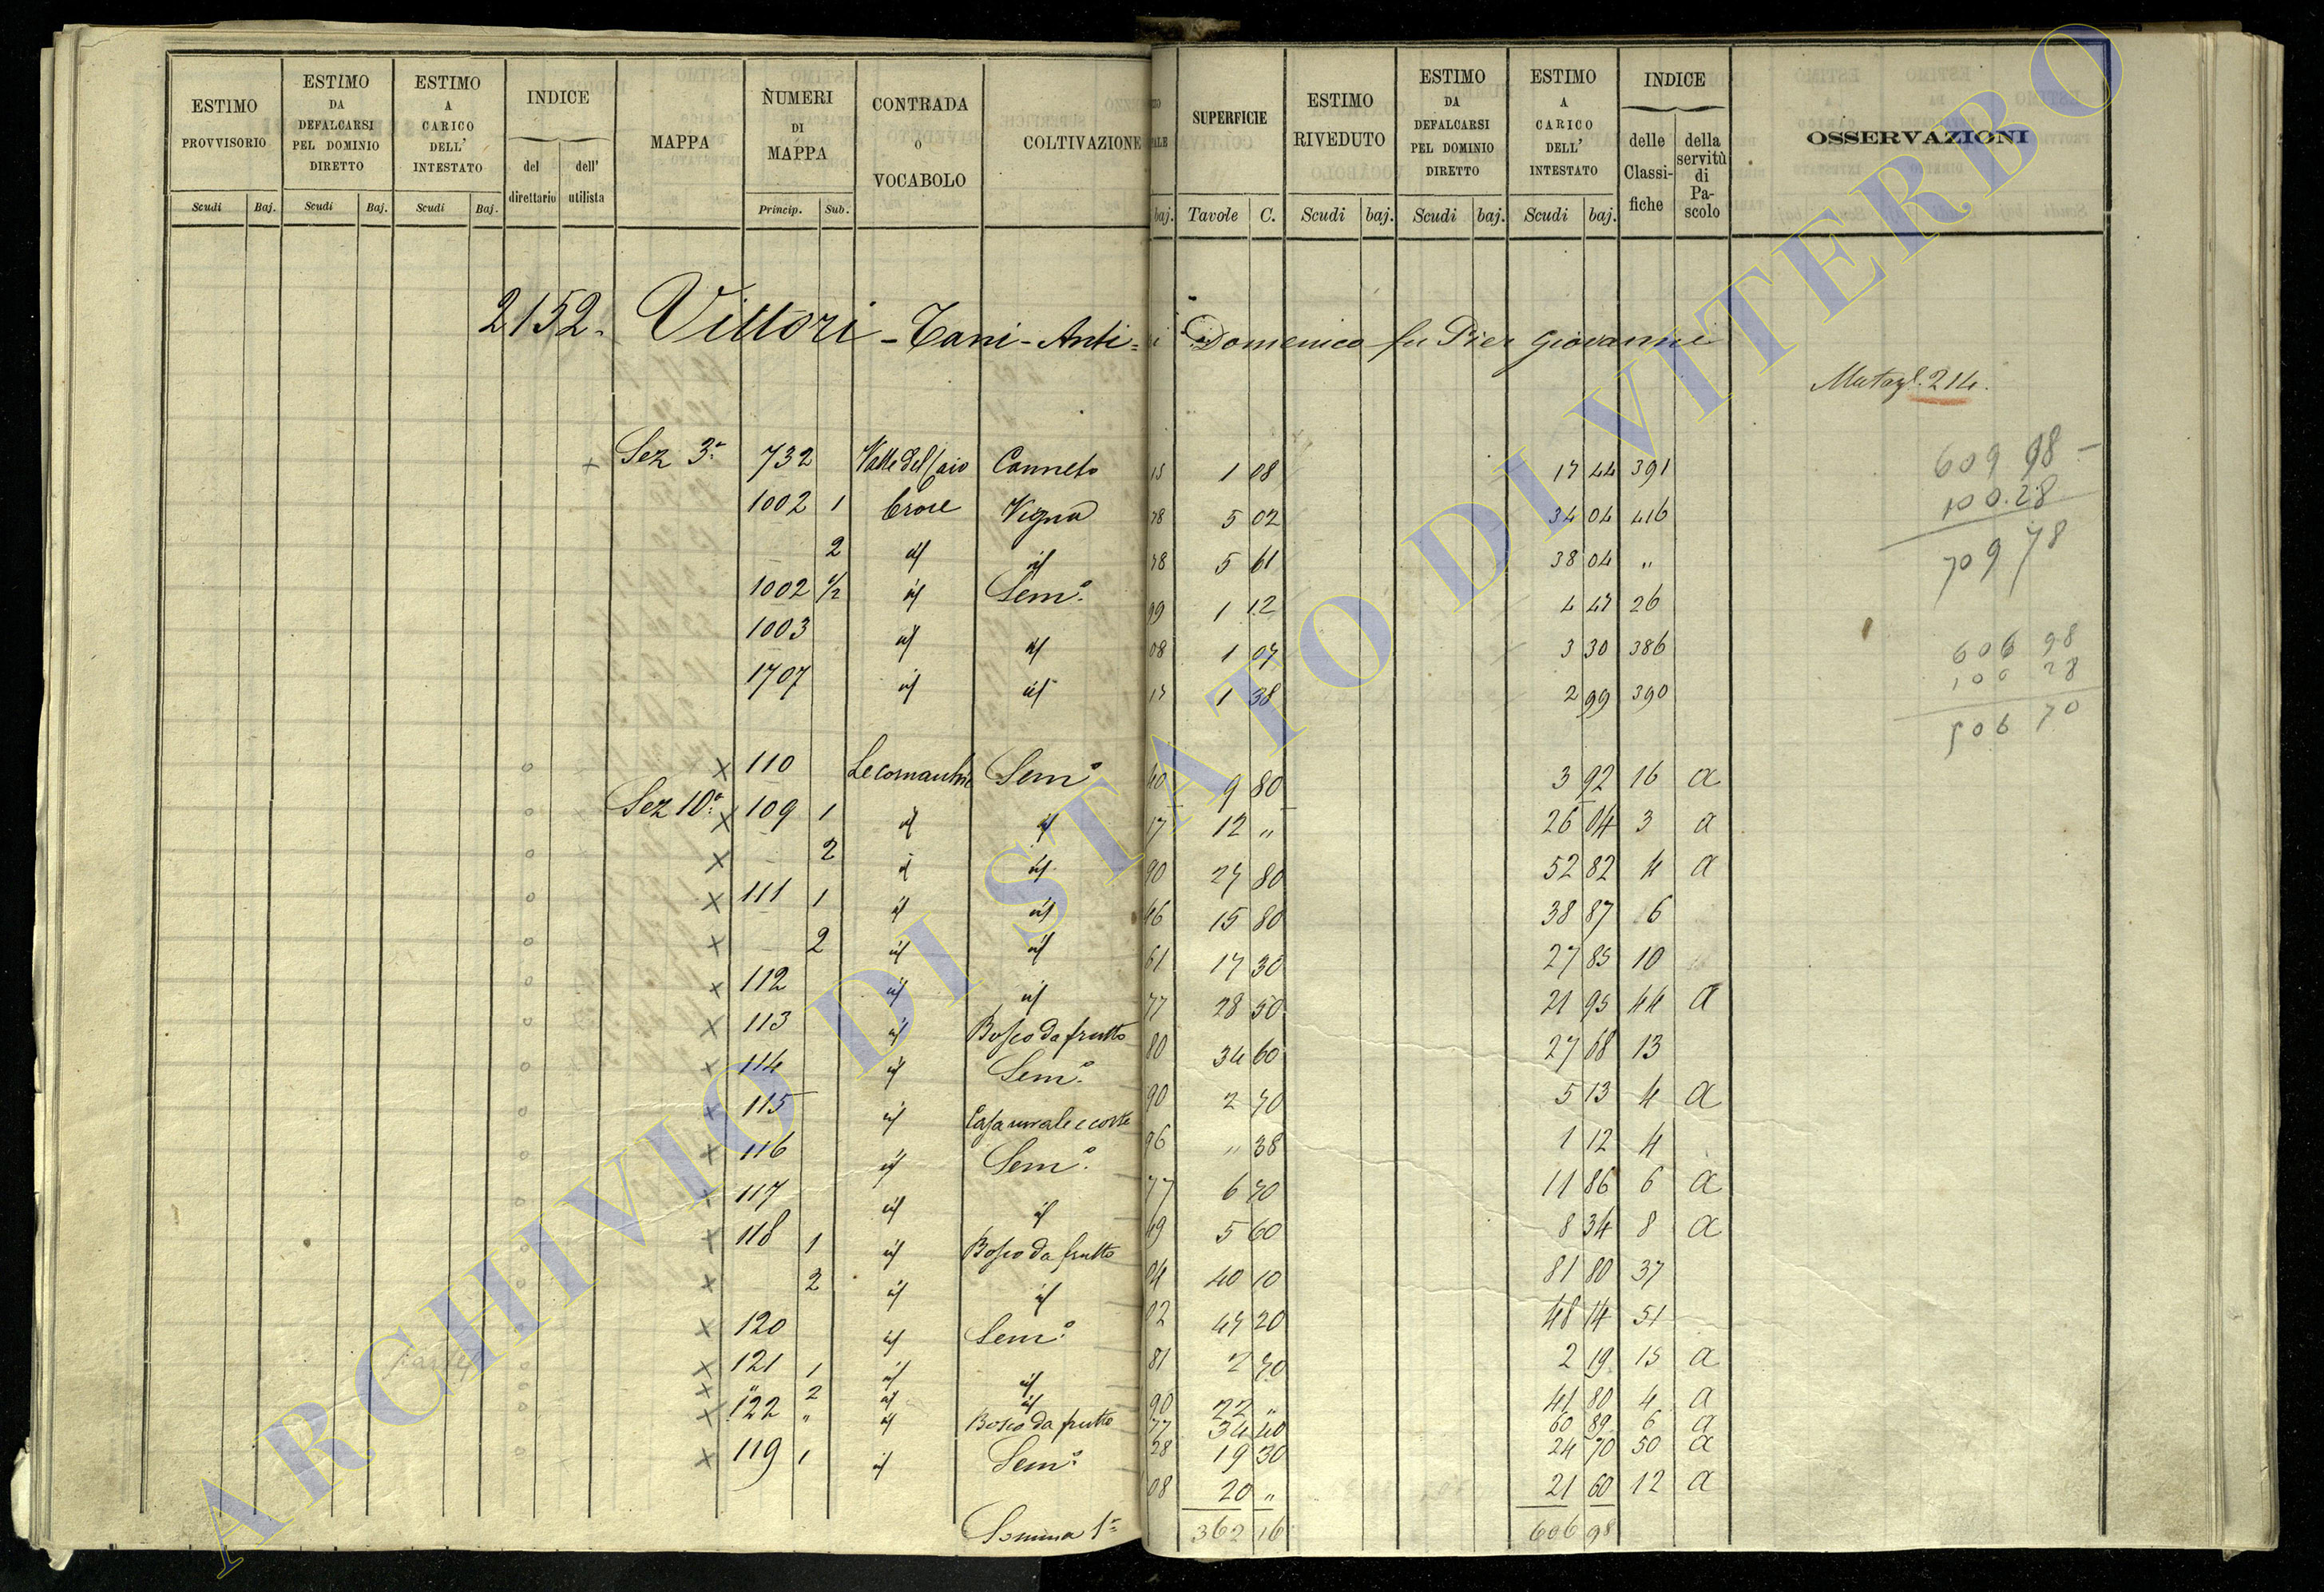 ESTIMO PROVVISORIO | ESTIMO DA DEFALCARSI PEL DOMINIO DIRETTO | ESTIMO A CARICO DELL' INTESTATO | INDICE del direttario | dell' utilista | MAPPA | NUMERI DI MAPPA | CONTRADA O VOCABOLO | COLTIVAZIONE | SUPERFICIE | ESTIMO RIVEDUTO | ESTIMO DA DEFALCARSI PEL DOMINIO DIRETTO | ESTIMO A CARICO DELL' INTESTATO | INDICE delle Classifiche | della servitù di Pascolo | OSSERVAZIONI
Scudi | Baj. | Scudi | Baj. | Scudi | Baj. | Princip. | Sub. | baj. | Tavole | C. | Scudi | baj. | Scudi | baj. | Scudi | baj.
2152. Vittori - Tani - Anti= i Domenico fu Pier Giovanni
214.
x Sez 3ª 732 Canneto 15 1 08 17 44 391
1002 1 Vigna 78 5 02 34 04 416
2 id id 78 5 61 38 04 "
1002 1/2 id Sem.º 99 1 12 4 47 26
1003 id id 08 1 07 3 30 386
1707 id id 17 1 38 2 99 390
x 110 Sem.º 40 9 80 3 92 16 a
Sez 10ª x 109 1 id id 17 12 " 26 04 3 a
x 2 id id 90 27 80 52 82 4 a
x 111 1 id id 46 15 80 38 87 6
x 2 id id 61 17 30 27 85 10
x 112 id id 77 28 50 21 95 44 a
x 113 id Bosco da frutto 80 34 60 27 68 13
x 114 id Sem.º 90 2 70 5 13 4 a
x 115 id Casa rurale e corte 96 " 38 1 12 4
x 116 id Sem.º 77 6 70 11 86 6 a
x 117 id id 49 5 60 8 34 8 a
x 118 1 id Bosco da frutto 04 40 10 81 80 37
x 2 id id 02 47 20 48 14 51
x 120 id Sem.º 81 2 70 2 19 15 a
x 121 1 id id 90 22 " 41 80 4 a
x " 2 id id 77 34 40 60 89 6 a
x 122 " id Bosco da frutto 28 19 30 24 70 50 a
x 119 1 id Sem.º 08 20 " 21 60 12 a
Somma 1ª 362 16 606 98
609 98
100.28
709 78
606 98
100 28
506 70
ARCHIVIO DI STATO DI VITERBO